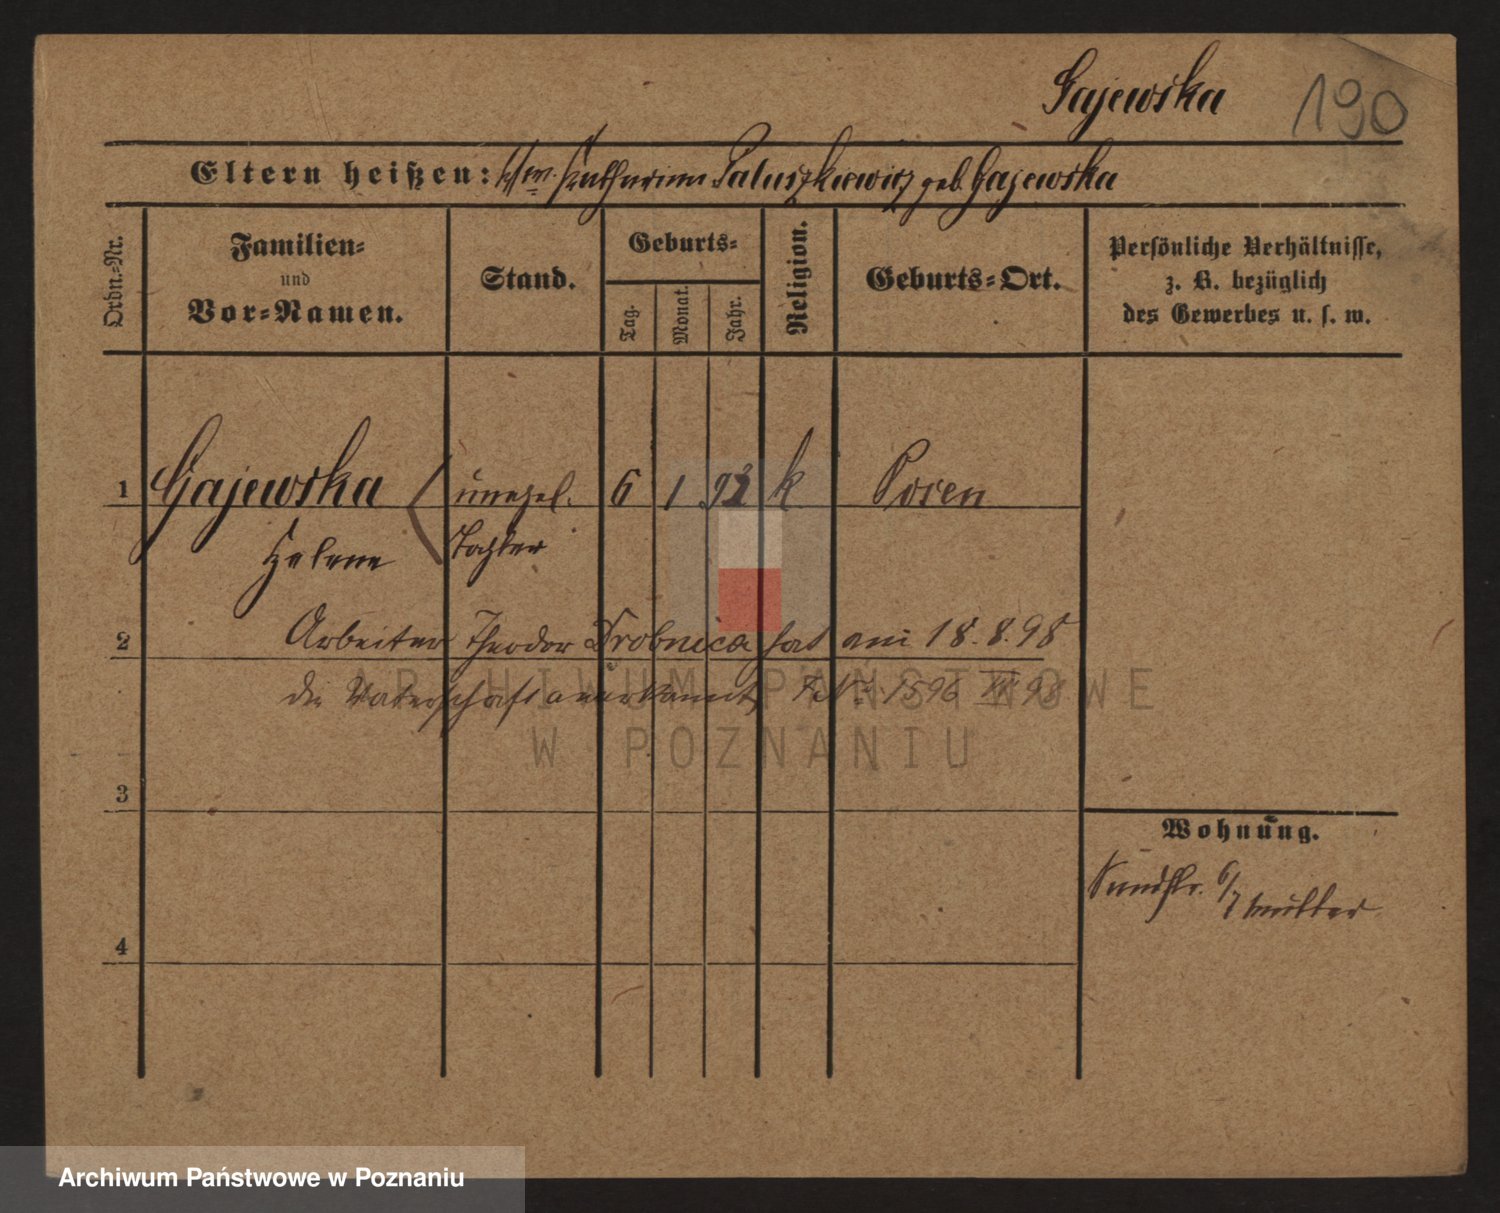 Gajewska 190
Eltern heißen: Ww. Katharina Paluszkiewicz geb. Gajewska
Ordn.-Nr.
Familien-
und
Vor-Namen.
Stand.
Geburts-
Tag.
Monat.
Jahr.
Religion.
Geburts-Ort.
Persönliche Verhältnisse,
z. B. bezüglich
des Gewerbes u. s. w.
1 Gajewska unehel. 6 1 92 k Posen
Helene Tochter
2 Arbeiter Theodor Drobnica hat am 18.8.98
die Vaterschaft anerkannt, 1596 98
3
Wohnung.
Sandstr. 6/7 Mutter
4
ARCHIWUM PAŃSTWOWE
W POZNANIU
Archiwum Państwowe w Poznaniu